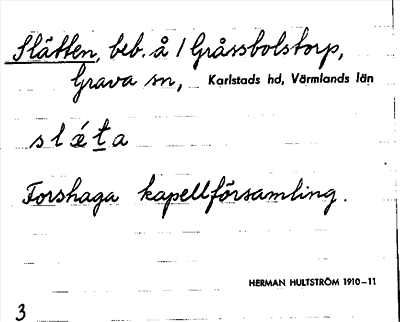 Slätten, beb. å 1 Gråssbolstorp,
Grava sn, Karlstads hd, Värmlands län
slǽt̲a
Forshaga kapellförsamling.
HERMAN HULTSTRÖM 1910–11
3